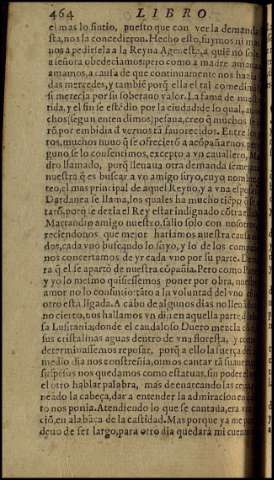 464 LIBRO
el mas lo sintio, puesto que con ver la demanda
sta, nos la concedieran. Hecho esto, fuymos mi
nos a pedirsela a la Reyna Agenesta, a quié no solo
a señora obedeciamos pero como a madre amaua
amamos, a causa de que continuamente nos hazia
das mercedes, y tambié porq̃ ella el tal comedimi
si merecia por su soberano valor. La fama de nuestra
tida, y el fin se estédio por la ciudad de lo qual, a
chos (segun entendimos) pesaua, creo q̃ muchos
rõ por embidia d vernos tã fauorecidos. Entre
tos, muchos huuo q̃ se ofrecierõ a acõpañarnos,
guno se lo consentimos, excepto a vn cauallero,
dro llamado, porq̃ lleuaua otra demanda seme
nuestra q̃ es buscar a vn amigo suyo, cuyo nom
teo, el mas principal de aquel Reyno, y a vna
Dardanea se llama, los quales ha mucho tiépo q̃ se
tarõ, porq̃ se dezia el Rey estar indignado cõtra
Macrandro amigo nuestro, salio solo con nosotros
reciendonos que mejor hariamos nuestra causa
doe, cada vno buscando lo suyo, y lo de los compa
nos concertamos de yr cada vno por su parte. De
ra q̃ el se aparto de nuestra cõpañia. Pero como
y yo lo mesmo quisiessemos poner por obra, nuestro
amor no lo consintio: tãto a la voluntad del vno
otro esta ligada. A cabo de algunos dias no lleua
no cierto, nos hallamos vn dia en aquella parte
sa Lusitania, donde el caudaloso Duero mezcla
sus cristalinas aguas dentro de vna floresta, y como
determinassemos reposar, porq̃ a ello la fuerça del
medio dia nos constreñia, oimos cantar tã suaue
suspensos nos quedamos como estatuas, sin poder
el otro hablar palabra, mas de en arcando las cejas
neado la cabeça, dar a entender la admiracion
to nos ponia. Atendiendo lo que se cantaua, era
ciõ, en alabãça de la castidad. Mas porque ya me
deuo de ser largo, para otro dia quedarà mi cuento